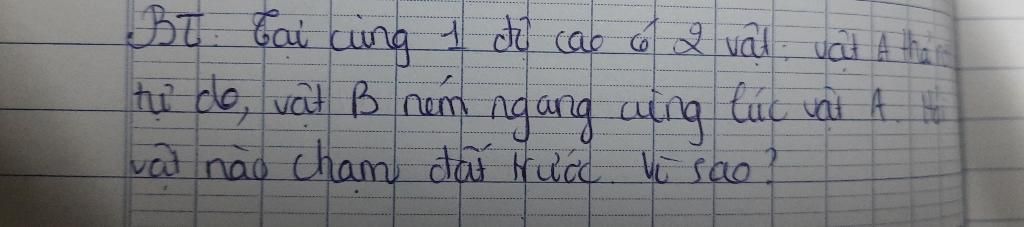 BT. Tại cùng 1 độ cao có 2 vật. vật A thả
tự do, vật B ném ngang cùng lúc vật A.
vật nào chạm đất trước. Vì sao?